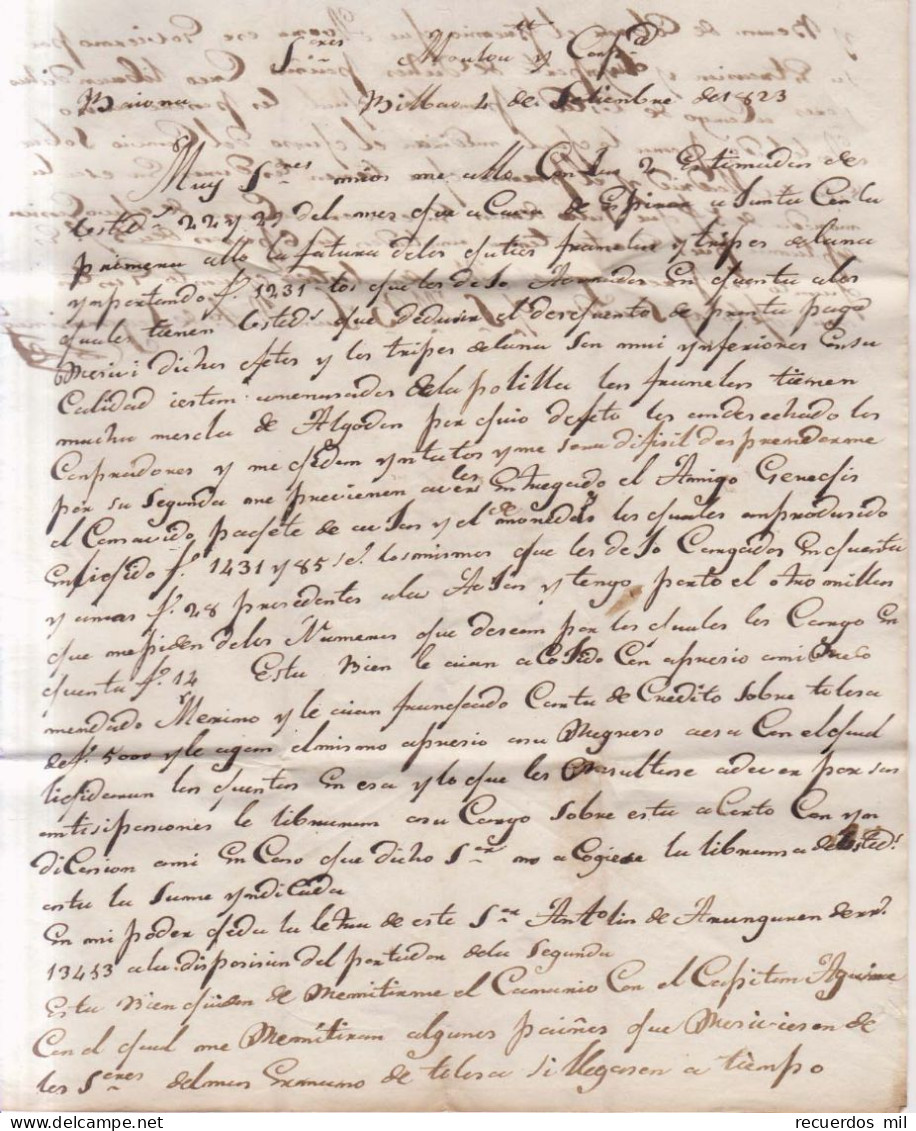 S.res Moulou y Comp.a
Baiona Bilbao 4 de Setienbre de 1823
Muy S.res mios me allo Con las 2 Estimadas de
Usted.s 22 y 29 del mes que acava de Espirar a Junta Con la
primera allo la fatura delos franelas y tripes de lana
ynportando f.s 1231 los que les dejo Avonados En quenta alos
quales tienen Usted.s que deducir el desquento de pronta pago
Resivi dichos efetos y los tripes de lana son mui ynferiores En su
Calidad i estan amenasados de la polilla las franelas tienen
mucha mescla de Algodon por cuio defeto los an desechado los
Conpradores y me quedan yntatos y me sera difisil desprenderme
por su Segunda me previenen averles Entregado el Amigo Genesis
el Consavido paquete de y el de monedas los quales an produsido
En liquido f.s 1431 y 85 los mismos que les dejo Cargados En quenta
y unos f.s 28 presedentes y tengo el otro millar
que me piden delos Numeros que desean por los quales les Cargo En
quenta f.s 14 Esta Bien le aian acojido Con apresio a mi Reco
mendado Maximo y le aian franqueado Carta de Credito Sobre tolosa
de f.s 5000 y le agan el mismo apresio a su Regreso a esa Con el qual
liquidaran las quentas En esa y lo que les Resultase adever por sus
antisipasiones le libraran a su Cargo Sobre esta a Corto Con yn
dicasion a mi En Caso que dicho S.or no acogiese la libransa de Usted.s
asta la Suma yndicada
En mi poder queda la letra de este S.or Antolin de Aranguren de r.n
13453 ala disposision del portador dela Segunda
Esta Bien queden de Remitirme el Camunio Con el Capitan Aguirre
Con el qual me Remitiran algunos pañes que Resiviesen de
los S.res de tolosa si llegasen a tiempo
recuerdos mil